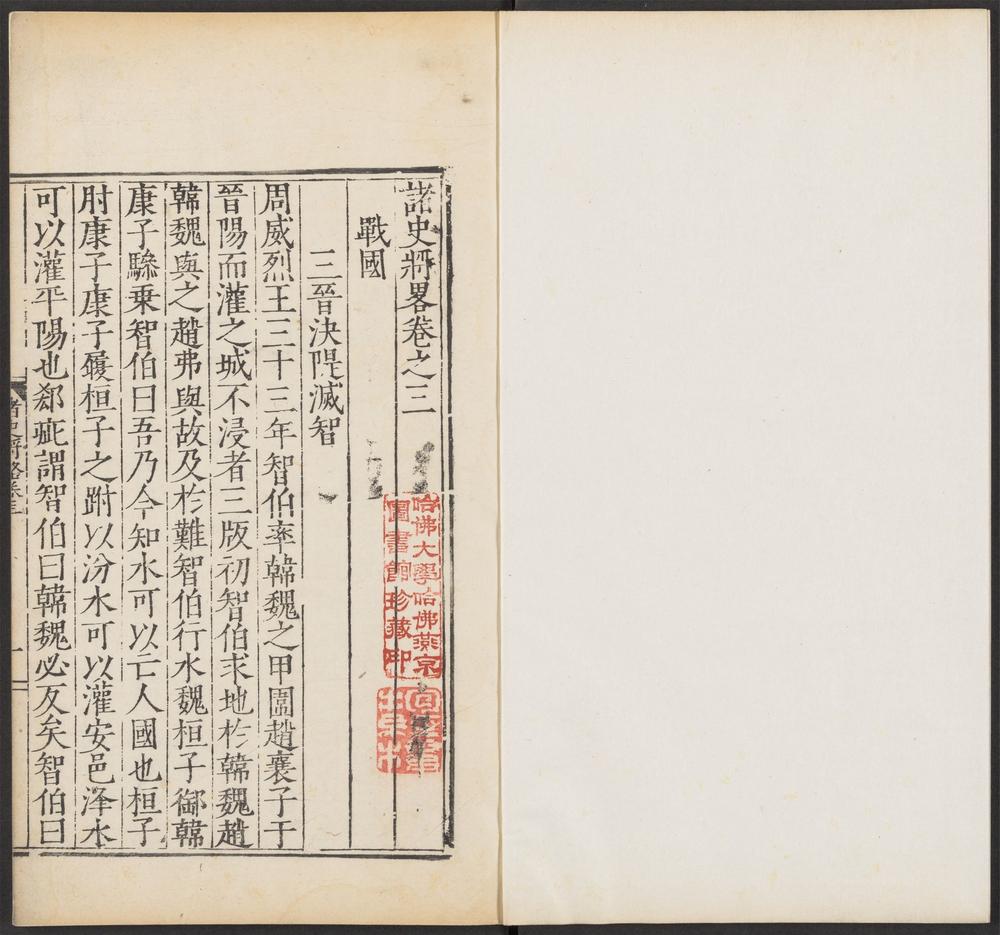 諸史將畧卷之三
戰國
三晉決隄滅智
周威烈王二十三年智伯率韓魏之甲圍趙襄子于
晉陽而灌之城不浸者三版初智伯求地於韓魏趙
韓魏與之趙弗與故及於難智伯行水魏桓子御韓
康子驂乗智伯曰吾乃今知水可以亡人國也桓子
肘康子康子履桓子之跗以汾水可以灌安邑泽水
可以灌平陽也郄疵謂智伯曰韓魏必反矣智伯曰
哈佛大學哈佛燕京
圖書館珍藏印